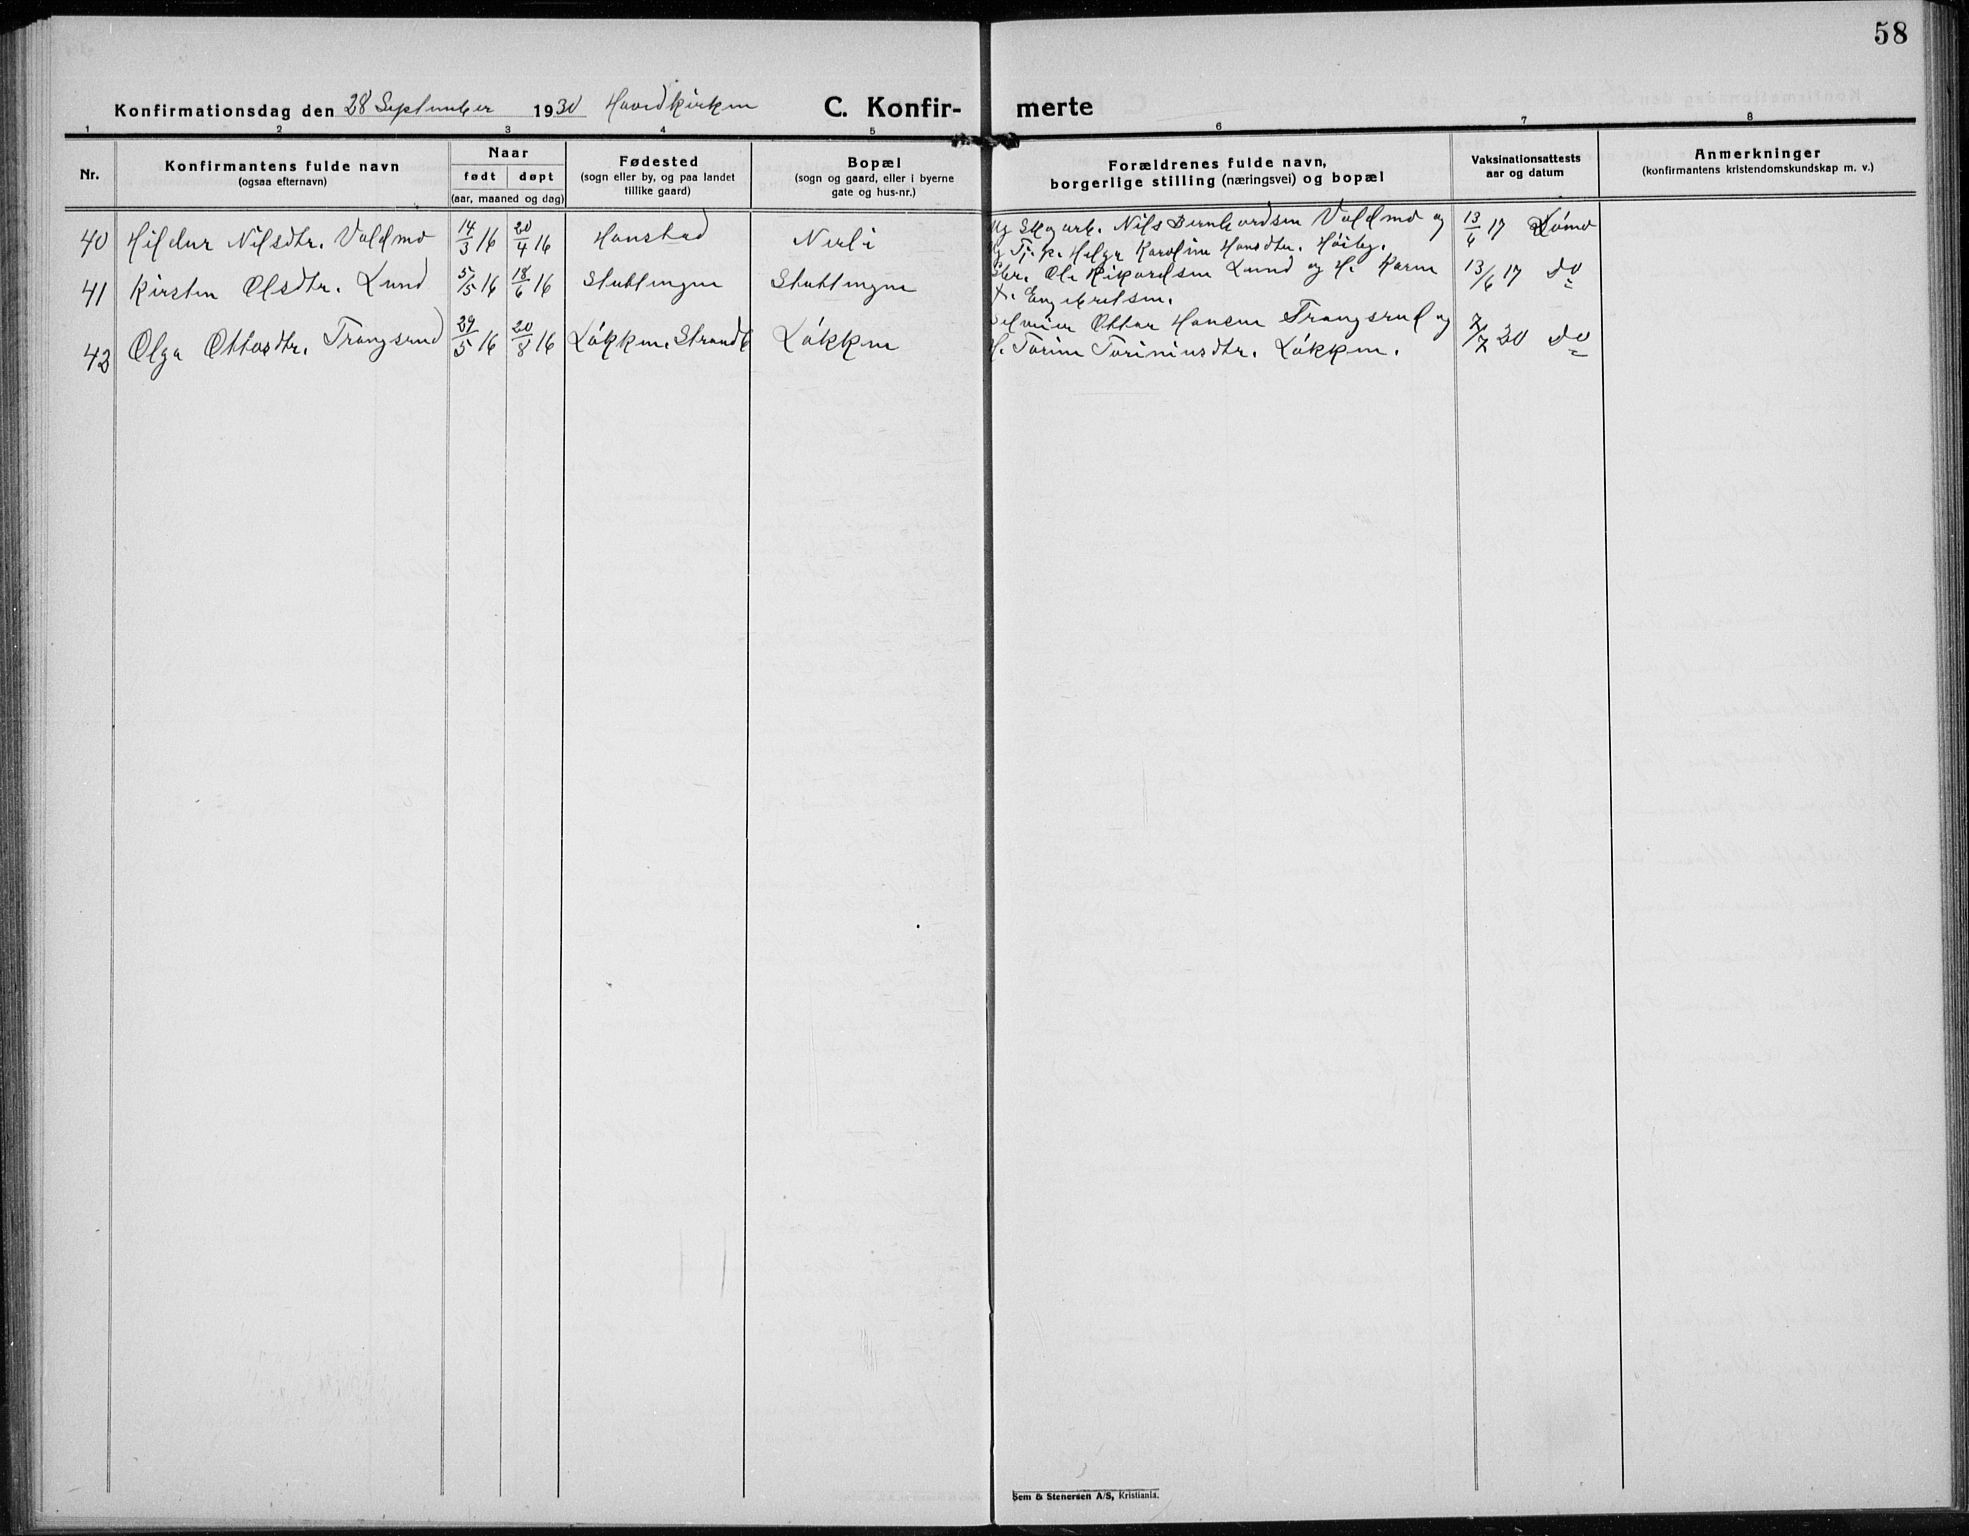 58
Konfirmationsdag den 28 September 1930 Hovedkirken C. Konfir- merte
1 2 3 4 5 6 7 8
Nr. Konfirmantens fulde navn (ogsaa efternavn) Naar født døpt (aar, maaned og dag) Fødested (sogn eller by, og paa landet tillike gaard) Bopæl (sogn og gaard, eller i byerne gate og hus-nr.) Forældrenes fulde navn, borgerlige stilling (næringsvei) og bopæl Vaksinationsattests aar og datum Anmerkninger (konfirmantens kristendomskundskap m. v.)
40 Hildur Nilsdtr. Valdmo 14/3 16 20/4 16 Honstad Nerli Ug Skogarb. Nils Bernhardsen Valdmo og 13/6 17 Rømo
Ug Tj. p. Helga Karoline Hansdtr. Høiby.
41 Kirsten Olsdtr. Lund 5/5 16 18/6 16 Stubtingne Stubtingne Ole Rikardsen Lund og H. Karen 13/6 17 do
Engebretsen.
42 Olga Ottosdtr. Trangsrud 29/5 16 20/8 16 Løkken. Løkken Ottar Hansen Trangsrud og 7/7 20 do
H. Torine Toriniusdtr. Løkken.
Sem & Stenersen A/S, Kristiania.